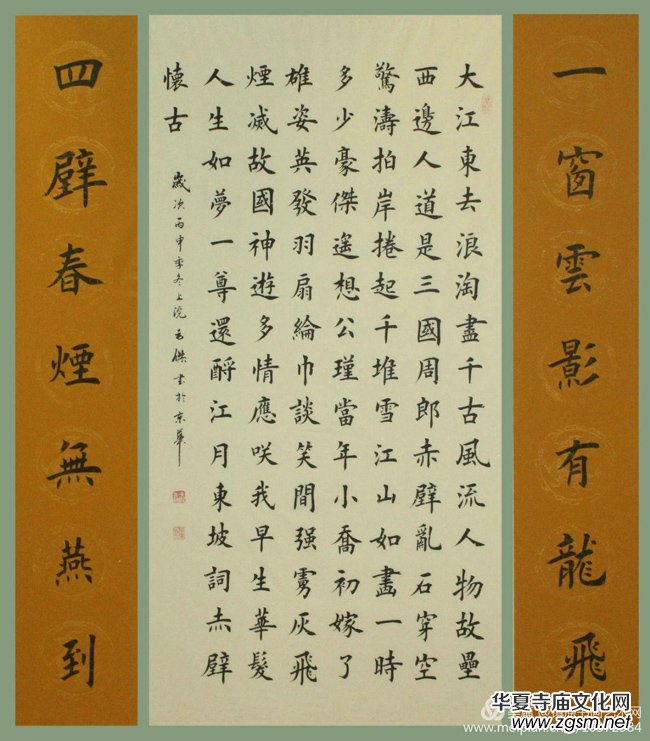 一窗雲影有龍飛
大江東去浪淘盡千古風流人物故壘
西邊人道是三國周郎赤壁亂石穿空
驚濤拍岸捲起千堆雪江山如畫一時
多少豪傑遙想公瑾當年小喬初嫁了
雄姿英發羽扇綸巾談笑間强虜灰飛
煙滅故國神遊多情應咲我早生華髮
人生如夢一尊還酹江月東坡詞赤壁
懷古
歲次丙申季冬上浣 傑書於京華
四壁春煙無燕到
华夏寺庙文化网
www.zgsm.net